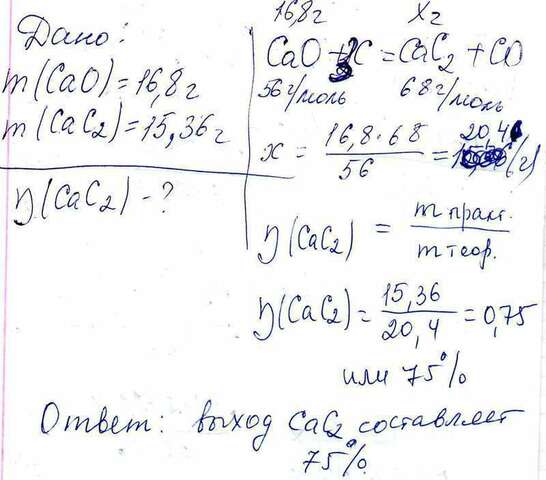 Дано:
m(CaO)=16,8г
m(CaC2)=15,36г
η(CaC2)-?
16,8г xг
CaO+3C=CaC2+CO
56г/моль 68г/моль
x = 16,8·68 / 56 = 20,4 (г)
η(CaC2) = m практ. / m теор.
η(CaC2) = 15,36 / 20,4 = 0,75
или 75%
Ответ: выход CaC2 составляет
75%